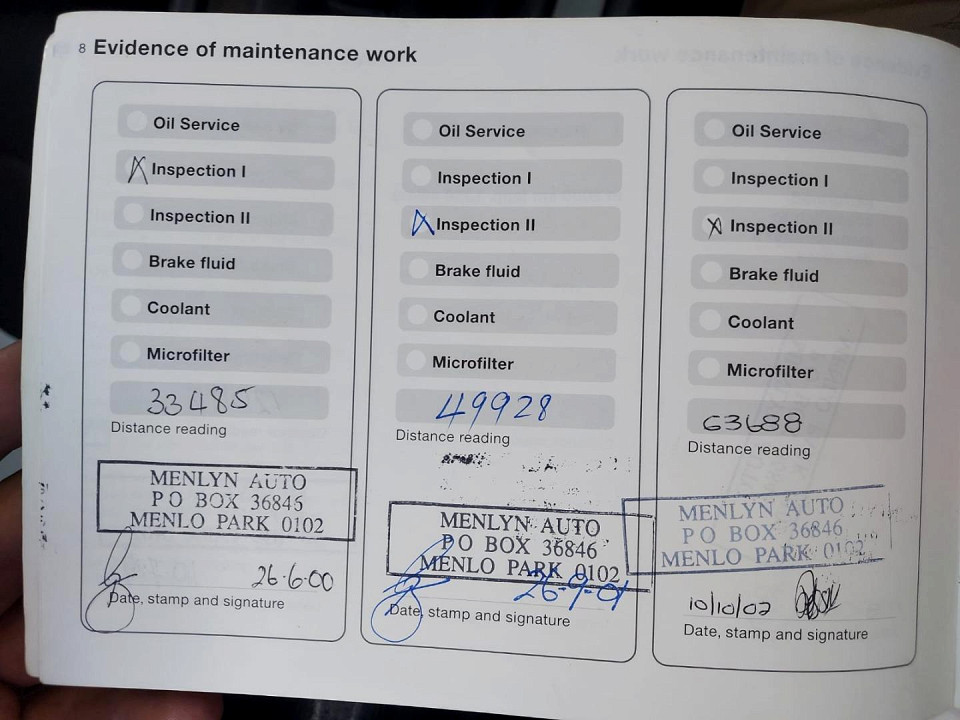 8 Evidence of maintenance work
Oil Service
Inspection I
Inspection II
Brake fluid
Coolant
Microfilter
33485
Distance reading
MENLYN AUTO
P O BOX 36846
MENLO PARK 0102
26.6.00
Date, stamp and signature
Oil Service
Inspection I
Inspection II
Brake fluid
Coolant
Microfilter
49928
Distance reading
MENLYN AUTO
P O BOX 36846
MENLO PARK 0102
26-9-01
Date, stamp and signature
Oil Service
Inspection I
Inspection II
Brake fluid
Coolant
Microfilter
63688
Distance reading
MENLYN AUTO
P O BOX 36846
MENLO PARK 0102
10/10/02
Date, stamp and signature